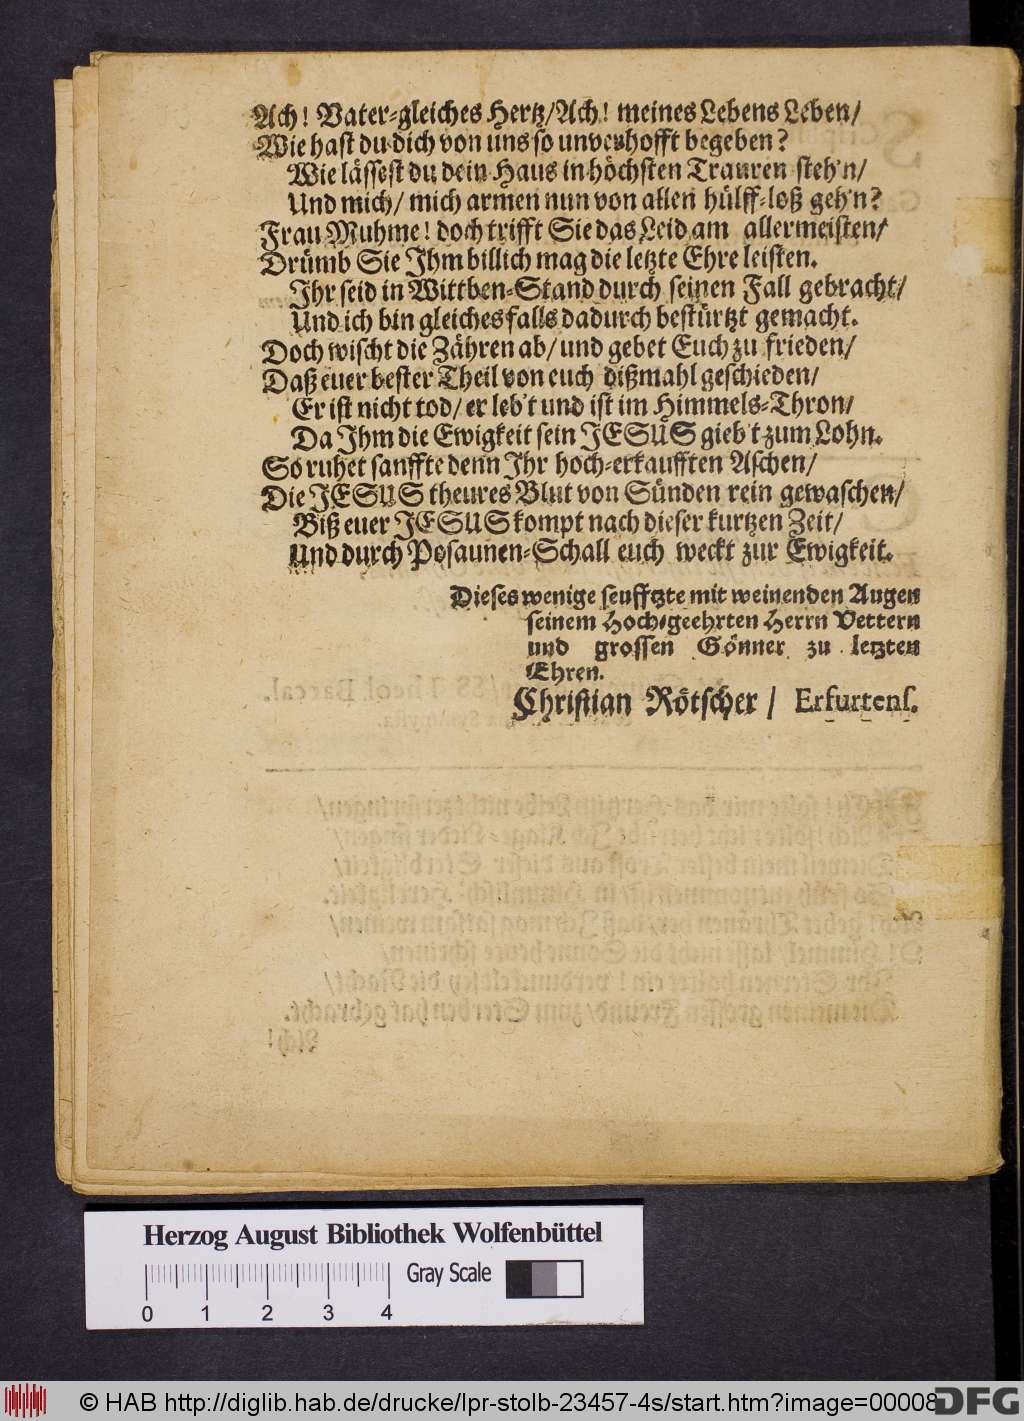 Ach! Vater-gleiches Hertz/Ach! meines Lebens Leben/
Wie hast du dich von uns so unverhofft begeben?
Wie lässest du dein Haus in höchsten Trauren steh'n/
Und mich/ mich armen nun von allen hülff-loß geh'n?
Frau Muhme! doch trifft Sie das Leid am allermeisten/
Drümb Sie Ihm billich mag die letzte Ehre leisten.
Ihr seid in Wittben-Stand durch seinen Fall gebracht/
Und ich bin gleichesfalls dadurch bestürtzt gemacht.
Doch wischt die Zähren ab/ und gebet Euch zu frieden/
Daß euer bester Theil von euch dißmahl geschieden/
Er ist nicht tod/ er leb't und ist im Himmels-Thron/
Da Ihm die Ewigkeit sein JESUS gieb't zum Lohn.
So ruhet sanffte denn Ihr hoch-erkaufften Aschen/
Die JESUS theures Blut von Sünden rein gewaschen/
Biß euer JESUS kompt nach dieser kurtzen Zeit/
Und durch Posaunen-Schall euch weckt zur Ewigkeit.
Dieses wenige seufftzte mit weinenden Augen
seinem Hoch-geehrten Herrn Vettern
und grossen Gönner zu letzten
Ehren.
Christian Rötscher / Erfurtens.
Herzog August Bibliothek Wolfenbüttel
Gray Scale
0 1 2 3 4
© HAB http://diglib.hab.de/drucke/lpr-stolb-23457-4s/start.htm?image=00008
DFG